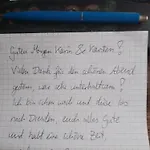 Guten Morgen Karin & Karsten!
Vielen Dank für den schönen Abend
gestern, war sehr unterhaltsam!
Ich bin schon wach und reise los
nach Dresden, euch alles Gute
und habt eine schöne Zeit